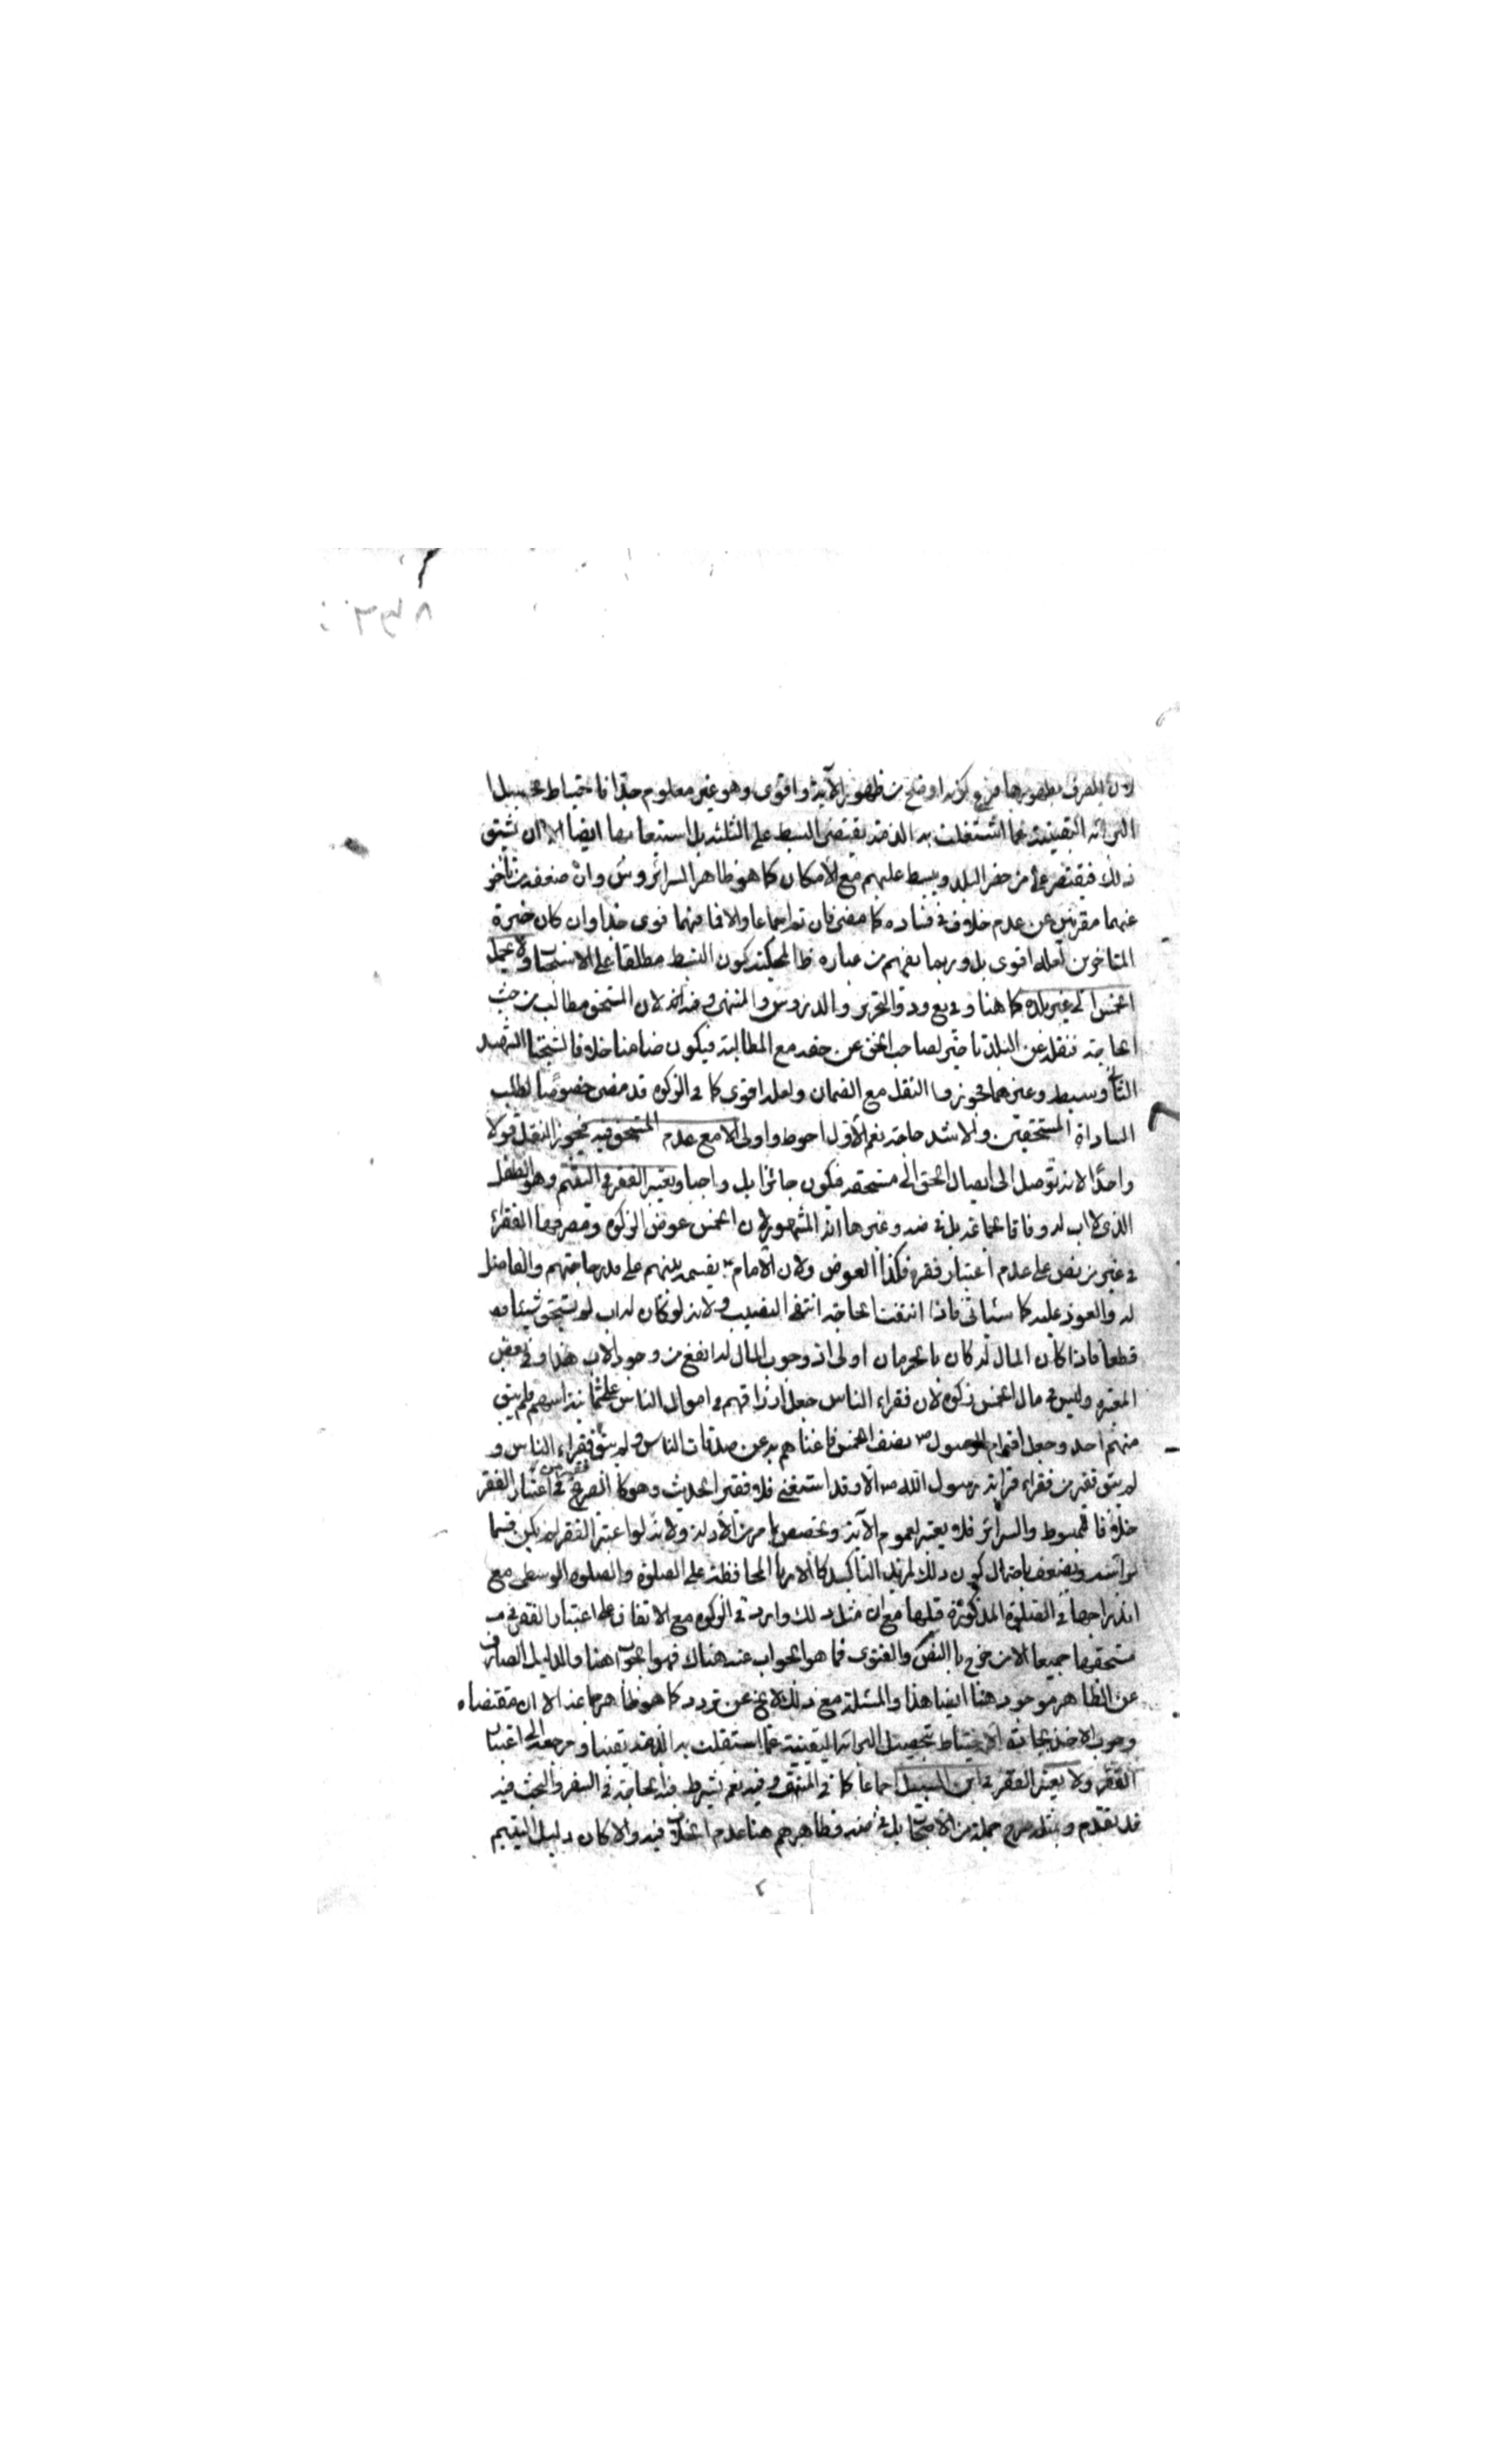 المصرف بظهورها فرع كونه اوضح من ظهور الآية واقوى وهو غير معلوم جدا فاحتياط تحصيل
البرائة اليقينية عما اشتغلت به الذمة يقتضى البسط على الثلثة بل استيعابها ايضا الا ان يشق
ذلك فيقتصر على من حضر البلد ويبسط عليهم مع الامكان كما هو ظاهر السرائر وس وان ضعفه من تأخر
عنهما مقربين عن عدم خلاف فى فساده كما مضى فان تم اجماعا والا فما فيهما قوى جدا وان كان خيرة
المتاخرين لعله اقوى بل وربما يفهم من عباره كون البسط مطلقا على الاستحباب ولا يحمل
الخمس الى غير بلده كما هنا وفى يع ود والتحرير والدروس والمنتهى وفيه انه لان المستحق مطالب من حيث
الحاجة فنقله عن البلد تاخير لصاحب الحق عن حقه مع المطالبة فيكون ضامنا خلافا لشيخنا الشهيد
الثانى وسبط وغيرهما فجوزوا النقل مع الضمان ولعله اقوى كما فى الزكوة قد مضى خصوصا لطلب
المساواة المستحقين والاشد حاجة نعم الاول احوط واولى الا مع عدم المستحق فيه فيجوز النقل قولا
واحدا لانه توصل الى ايصال الحق الى مستحقه فيكون جائزا بل واجبا ويعتبر الفقر فى اليتيم وهو الطفل
الذى لا اب له وفاقا لجماعة بل فى ضه وغيرها انه المشهور لان الخمس عوض الزكوة ومصرفها الفقراء
فى غير من نص على عدم اعتبار فقره فكذا العوض ولان الامام ع يقسمه بينهم على قدر حاجتهم والفاضل
له والعوز عليه كما سياتى فاذا انتفت الحاجة انتفى النصيب ولانه لو كان له اب لم يستحق شيئا منه
قطعا فاذا كان المال له كان بالحرمان اولى اذ وجود المال له انفع من وجود الاب هذا وفى بعض
المعتبرة وليس فى مال الخمس زكوة لان فقراء الناس جعل ارزاقهم فى اموال الناس على ثمانية اسهم فلم يبق
منهم احد وجعل لفقراء الرسول ص نصف الخمس فاغناهم به عن صدقات الناس ولم يبق فقراء الناس و
لم يبق فقير من فقراء قرابة رسول الله ص الا وقد استغنى فلا فقير الحديث وهو كالصريح فى اعتبار الفقر
خلافا للمبسوط والسرائر فلا يعتبر لعموم الآية ويخصص بما مر من الادلة ولانه لو اعتبر الفقر لم يكن قسما
براسه ويضعف باحتمال كون ذلك لمزيد التاكيد كالامر بالمحافظة على الصلوة والصلوة الوسطى مع
اندراجها فى الصلوة المذكورة قبلها مع ان مثل ذلك وارد فى الزكوة مع الاتفاق على اعتبار الفقر فى
مستحقيها جميعا الا من خرج بالنص والفتوى فما هو الجواب عنه هناك فهو الجواب هنا والدليل الصارف
عن الظاهر موجود هنا ايضا هذا والمسئلة مع ذلك لا تخ عن تردد كما هو ظاهر جماعة الا ان مقتضاه
وجوب الاخذ بجانب الاحتياط تحصيل البرائة اليقينية عما اشتغلت به الذمة يقينا ومرجعه الى اعتبار
الفقر ولا يعتبر الفقر فى ابن السبيل اجماعا كما فى المنتهى وفيه نعم يشترط فيه الحاجة فى السفر والبحث فيه
قد تقدم وبمثله صرح جملة من الاصحاب بل فى ضه فظاهرهم هنا عدم الخلاف فيه والا كان دليل اليتيم